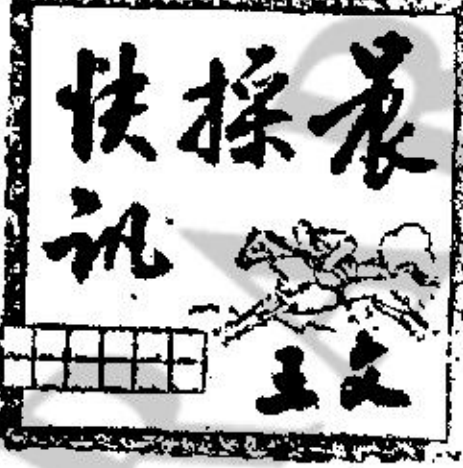 晨採快
訊
文王